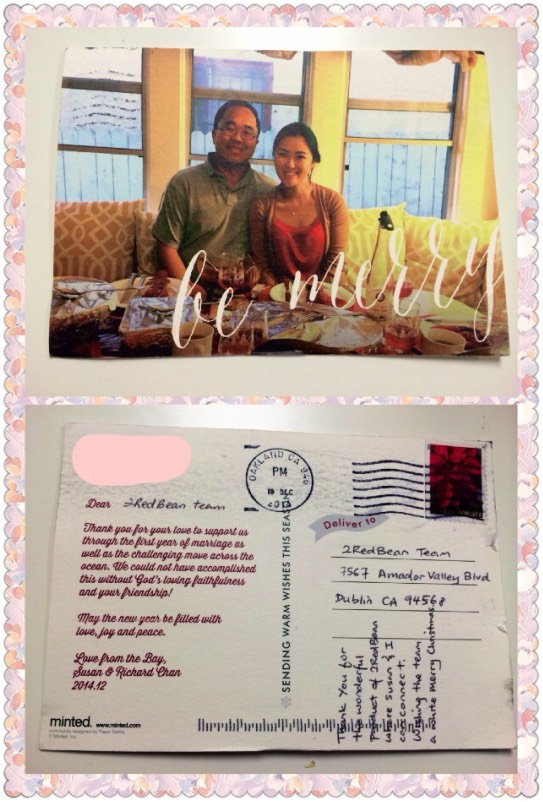 be merry
OAKLAND CA 946
PM
19 DEC
Dear 2RedBean Team
Thank you for your love to support us
through the first year of marriage as
well as the challenging move across the
ocean. We could not have accomplished
this without God's loving faithfulness
and your friendship!
May the new year be filled with
love, joy and peace.
Love from the Bay,
Susan & Richard Chan
2014.12
minted. www.minted.com
community designed by Paper Dahlia
© Minted, Inc.
SENDING WARM WISHES THIS SEASON
Deliver to
2RedBean Team
7567 Amador Valley Blvd
Dublin CA 94568
Thank You for
the wonderful
product of 2RedBean
where Susan & I
connect.
Wishing the team
a Merry Christmas